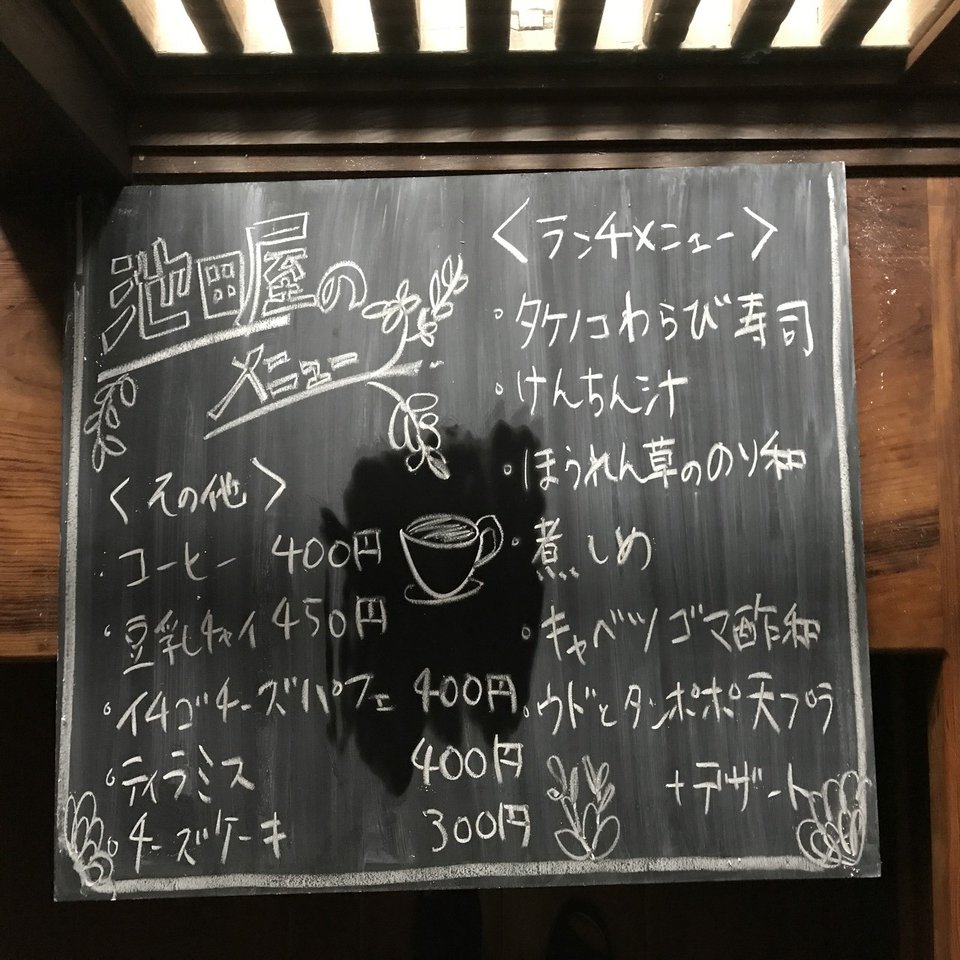 池田屋の
メニュー
＜その他＞
・コーヒー 400円
・豆乳チャイ 450円
・イチゴチーズパフェ 400円
・ティラミス 400円
・チーズケーキ 300円
＜ランチメニュー＞
・タケノコわらび寿司
・けんちん汁
・ほうれん草ののり和
・煮しめ
・キャベツゴマ酢和
・ウドとタンポポ天プラ
+デザート